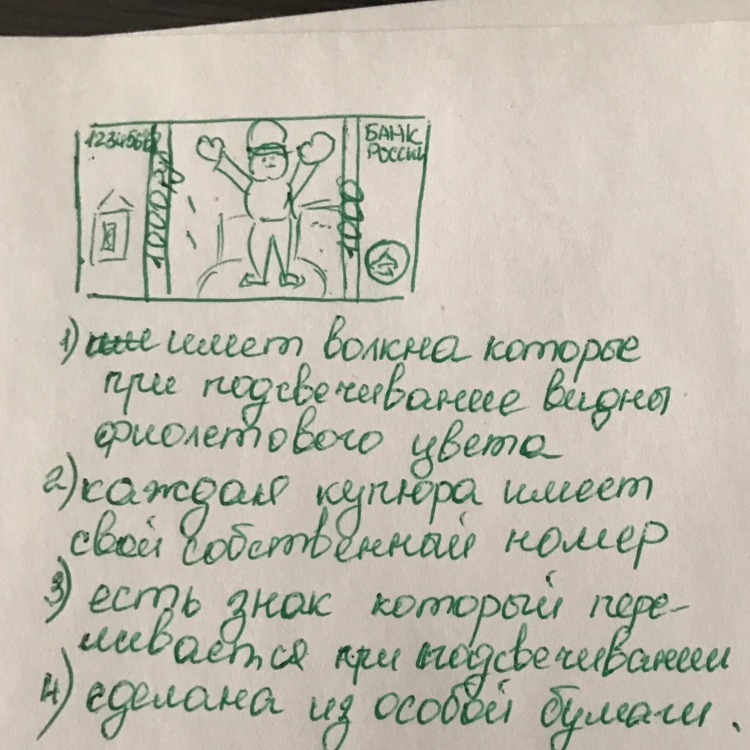 12345687
БАНК
РОССИИ
1000
1000
1) имеет волкна которые
при подсвечивание видны
фиолетового цвета
2) каждая купюра имеет
свой собственный номер
3) есть знак который пере-
ливается при подсвечивании
4) сделана из особой бумаги.